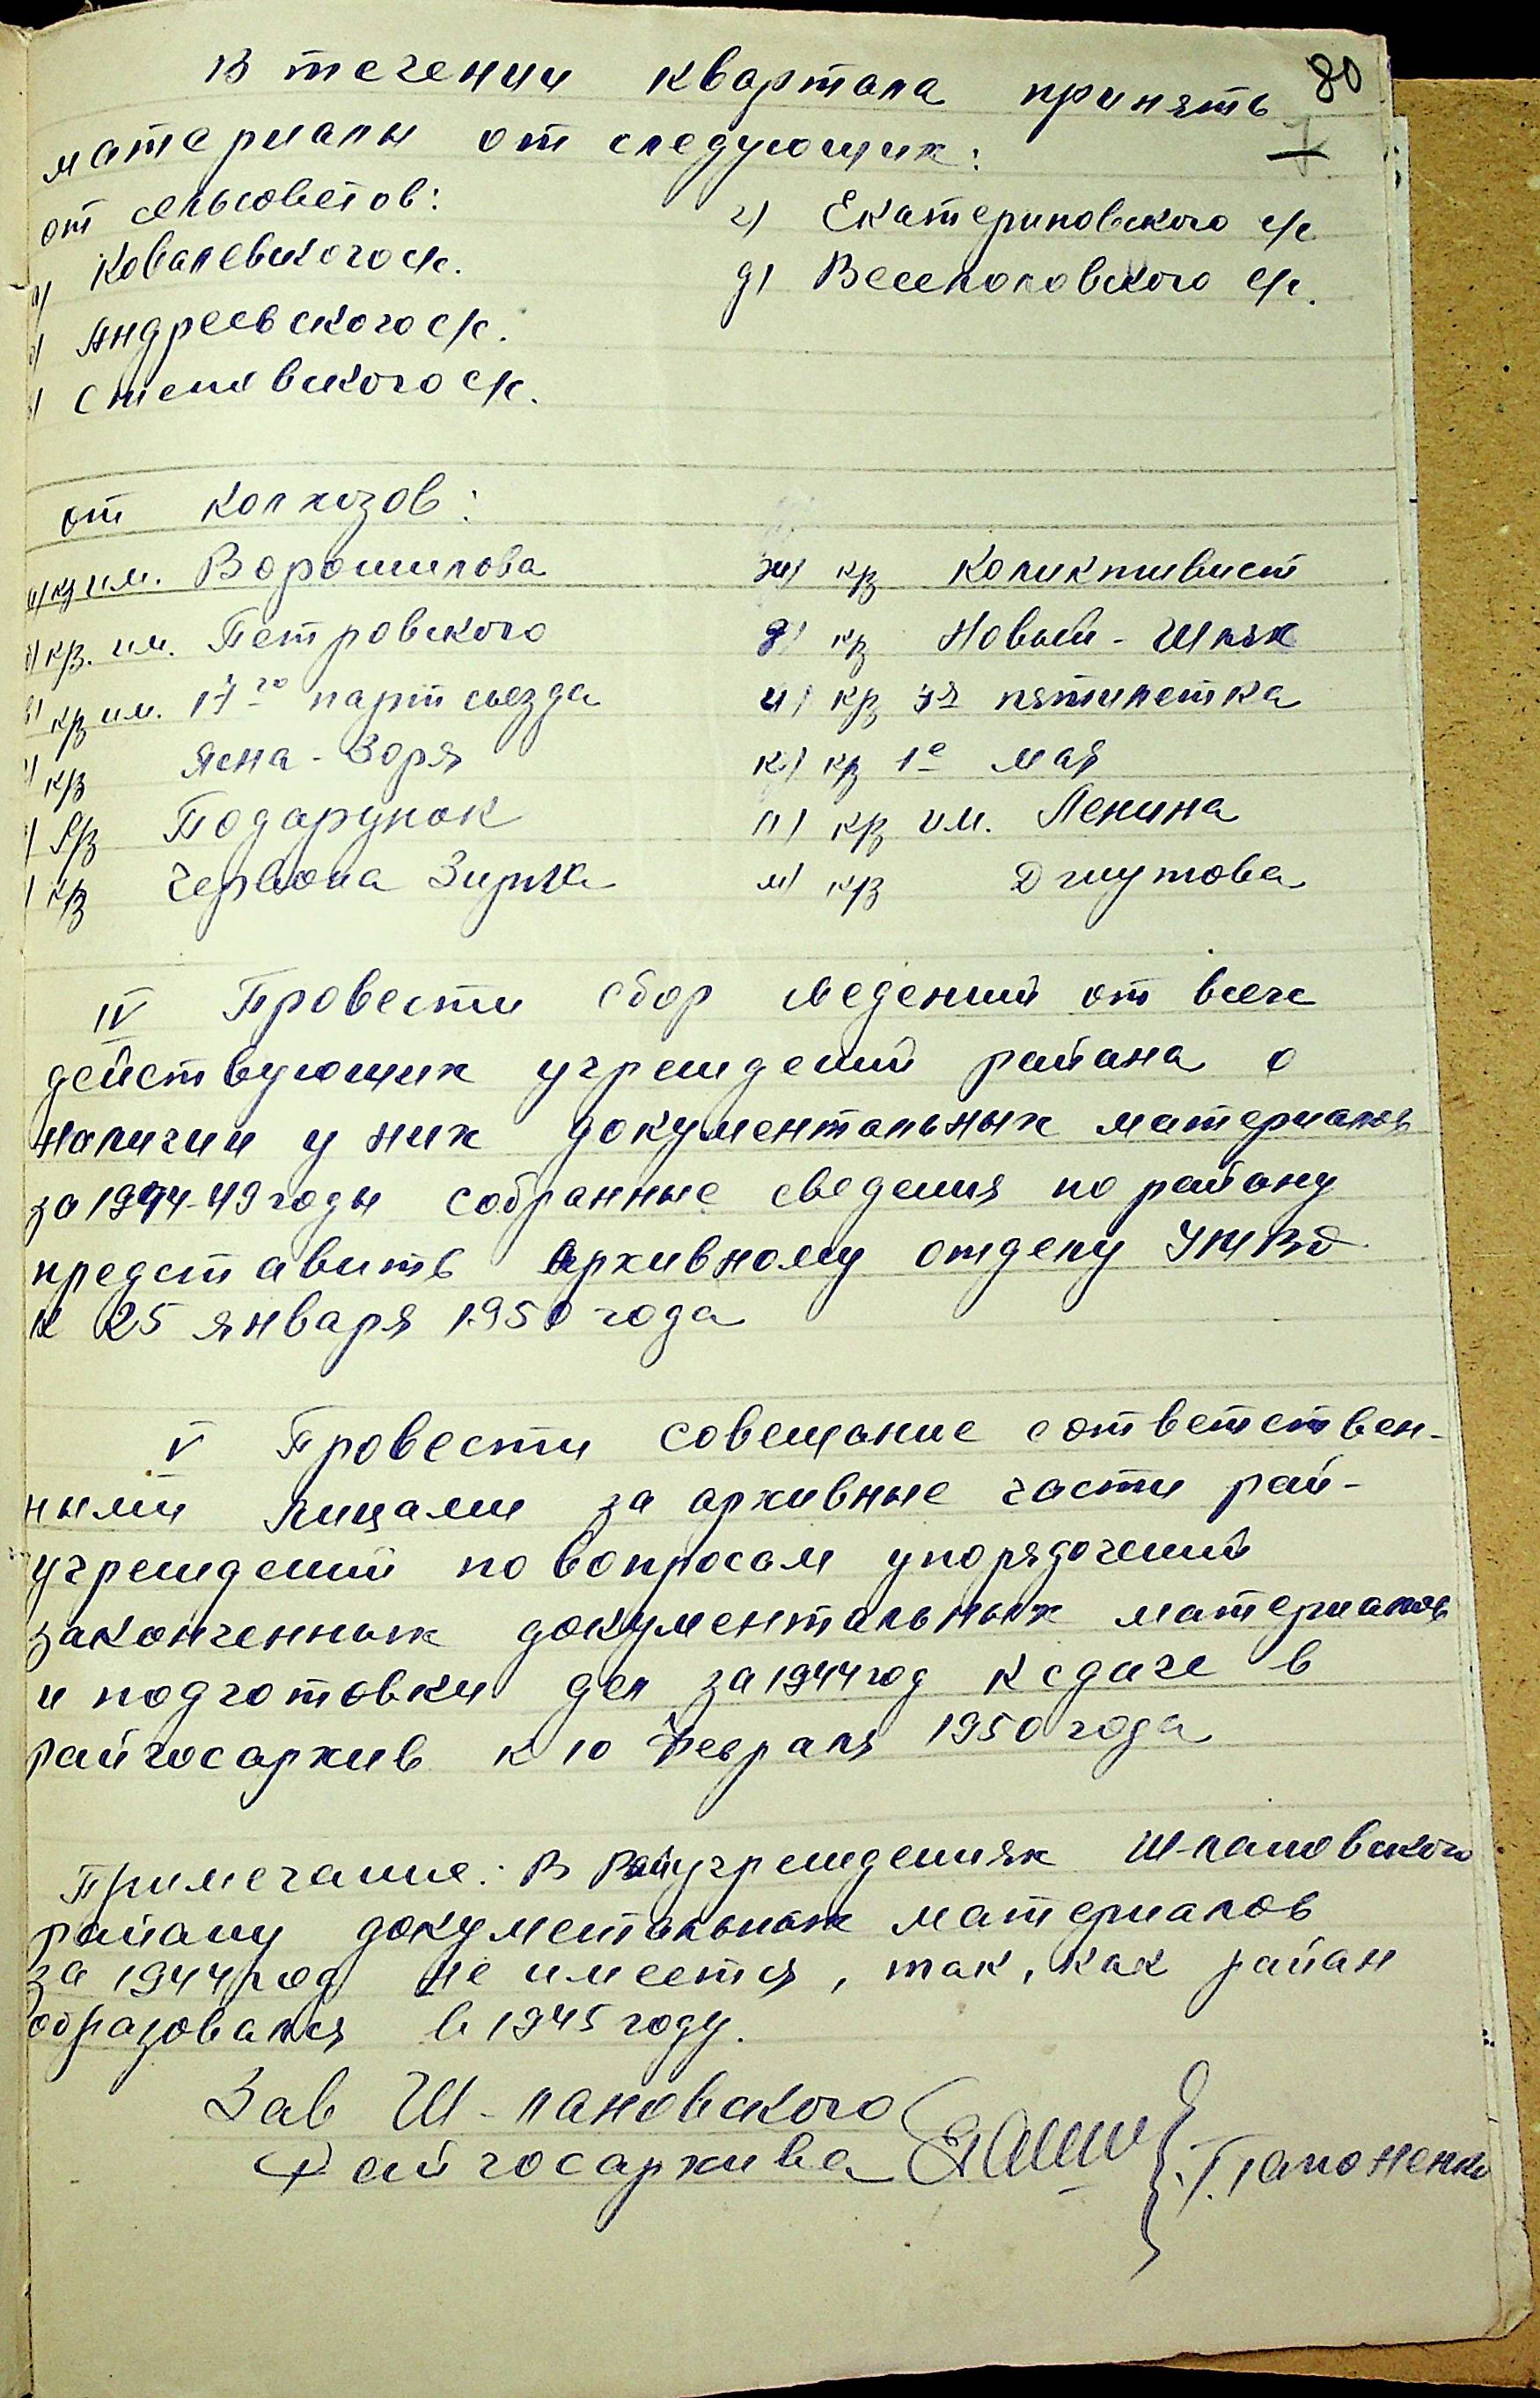 80
В течении квартала принять
материалы от следующих:
от сельсоветов:
а) Ковалевского с/с.
б) Андреевского с/с.
в) Степовского с/с.
г) Екатериновского с/с
д) Веселоповского с/с.
от колхозов:
а) кз им. Ворошилова
б) кз. им. Петровского
в) кз им. 17го парт съезда
г) кз Ясна-Зоря
) кз Подарунок
) кз Червона Зирка
ж) кз Коликтивист
з) кз Новый-Шлях
и) кз 3я пятилетка
к) кз 1е мая
л) кз им. Ленина
м) кз
IV Провести сбор сведений от всех
действующих учреждений района о
наличии у них документальных материалов
за 1944-49 годы собранные сведения по району
представить Архивному отделу УМВД
к 25 января 1950 года
V Провести совещание с ответствен-
ными лицами за архивные части рай-
учреждений по вопросам упорядочений
законченных документальных материалов
и подготовки дел за 1944 год к сдаче в
райгосархив к 10 Февраля 1950 года
Примечание: В Райучреждениях Ш-лановского
району документальных материалов
за 1944 год не имеется, так, как район
образовался в 1945 году.
Зав Ш-лановского
Райгосархива Гапоненко